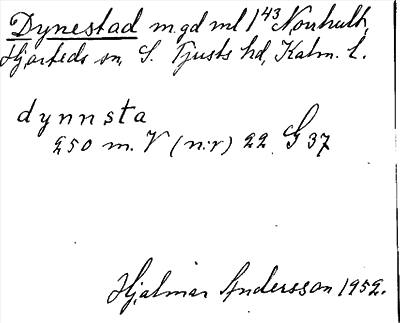 Dynestad m.gd ml 1⁴³ Norrhult,
Hjorteds sn, S. Tjusts hd, Kalm. l.
dynnsta
250 m. V (n:r) 22 G 37
Hjalmar Andersson 1952.